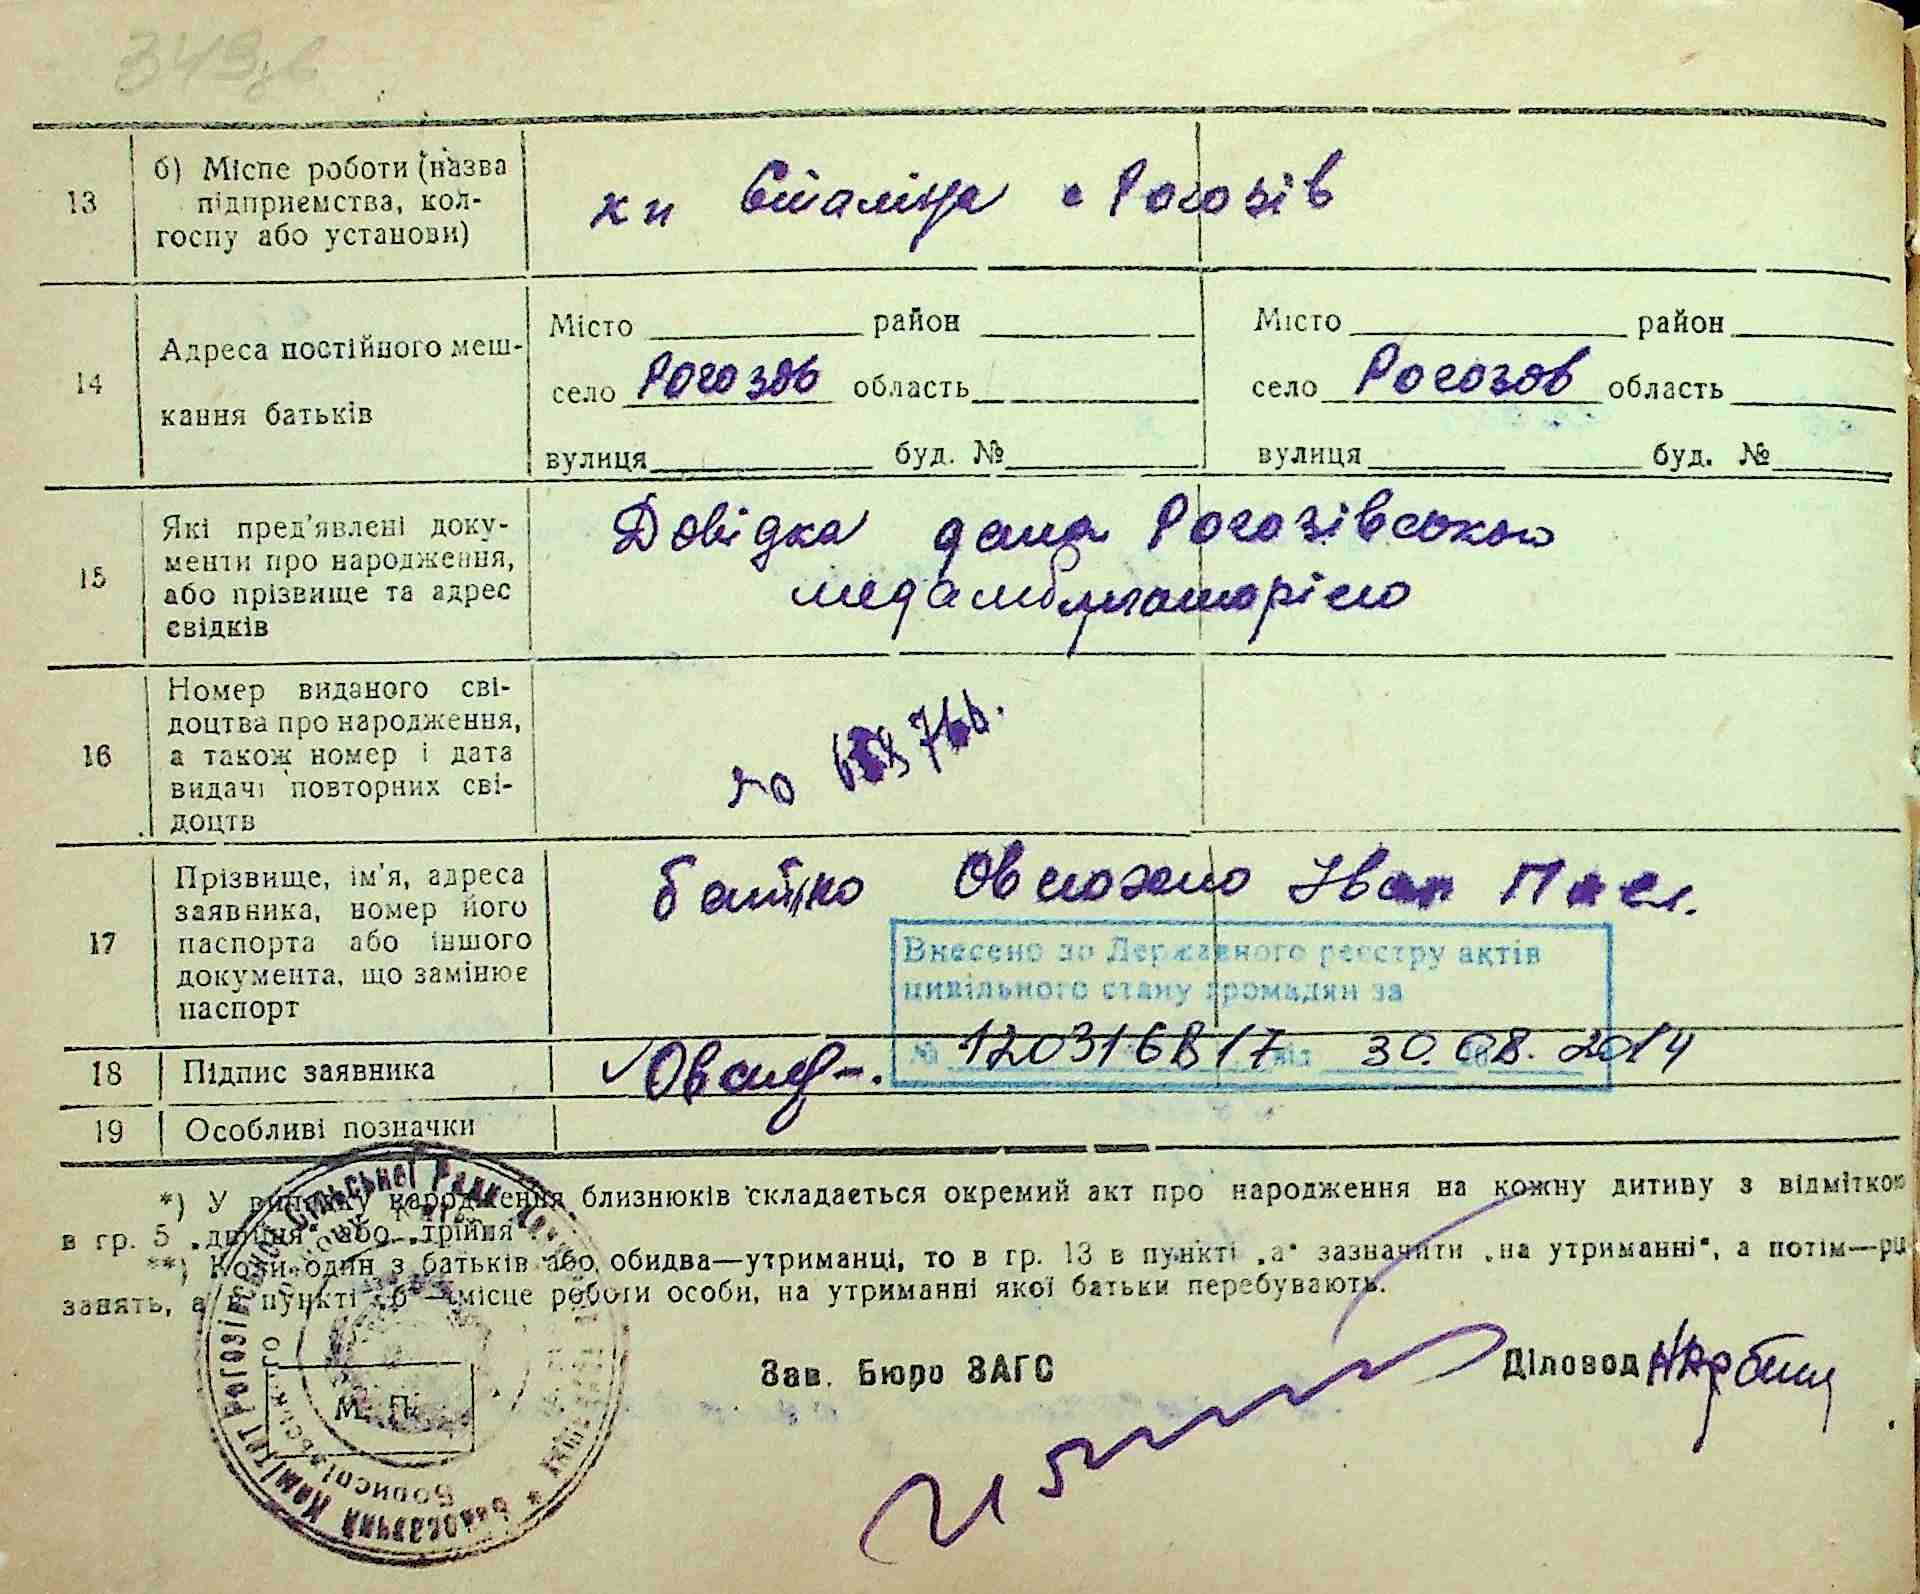 13
б) Місце роботи (назва
підприємства, кол-
госпу або установи)
кп Сталіна с Рогозів
14
Адреса постійного меш-
кання батьків
Місто район
село Рогозов область
вулиця буд. №
Місто район
село Рогозов область
вулиця буд. №
15
Які пред'явлені доку-
менти про народження,
або прізвище та адрес
свідків
Довідка дана Рогозівською
медамбулаторією
16
Номер виданого сві-
доцтва про народження,
а також номер і дата
видачі повторних сві-
доцтв
17
Прізвище, ім'я, адреса
заявника, номер його
паспорта або іншого
документа, що замінює
паспорт
батько Іван Павл.
Внесено до Державного реєстру актів
цивільного стану громадян за
№ 120316817 від 30.08.2014
18
Підпис заявника
19
Особливі позначки
*) У випадку народження близнюків складається окремий акт про народження на кожну дитину з відміткою
в гр. 5 „двійня“ або „трійня“.
**) Коли один з батьків або обидва—утриманці, то в гр. 13 в пункті „а“ зазначити „на утриманні“, а потім—рід
занять, а в пункті „б“—місце роботи особи, на утриманні якої батьки перебувають.
М. П.
Зав. Бюро ЗАГС
Діловод
Виконавчий Комітет Рогозівської Сільської Ради
Бориспільського